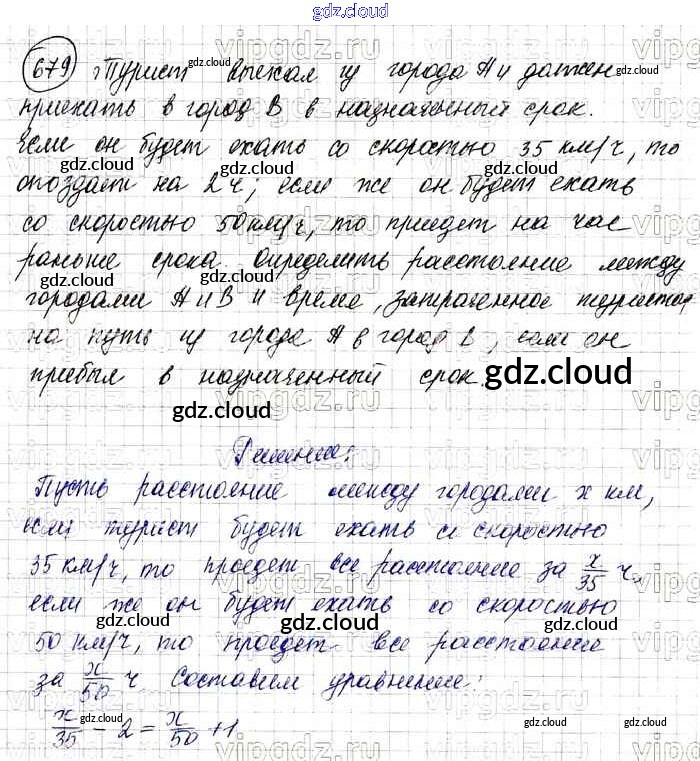 gdz.cloud
679 Турист выехал из города А и должен
приехать в город В в назначенный срок.
Если он будет ехать со скоростью 35 км/ч, то
опоздает на 2 ч; если же он будет ехать
со скоростью 50 км/ч, то приедет на час
раньше срока. Определить расстояние между
городами А и В и время, затраченное туристом
на путь из города А в город В, если он
прибыл в назначенный срок.
Решение:
Пусть расстояние между городами x км,
если турист будет ехать со скоростью
35 км/ч, то проедет все расстояние за x/35 ч,
если же он будет ехать со скоростью
50 км/ч, то проедет все расстояние
за x/50 ч. Составим уравнение:
x/35 - 2 = x/50 + 1